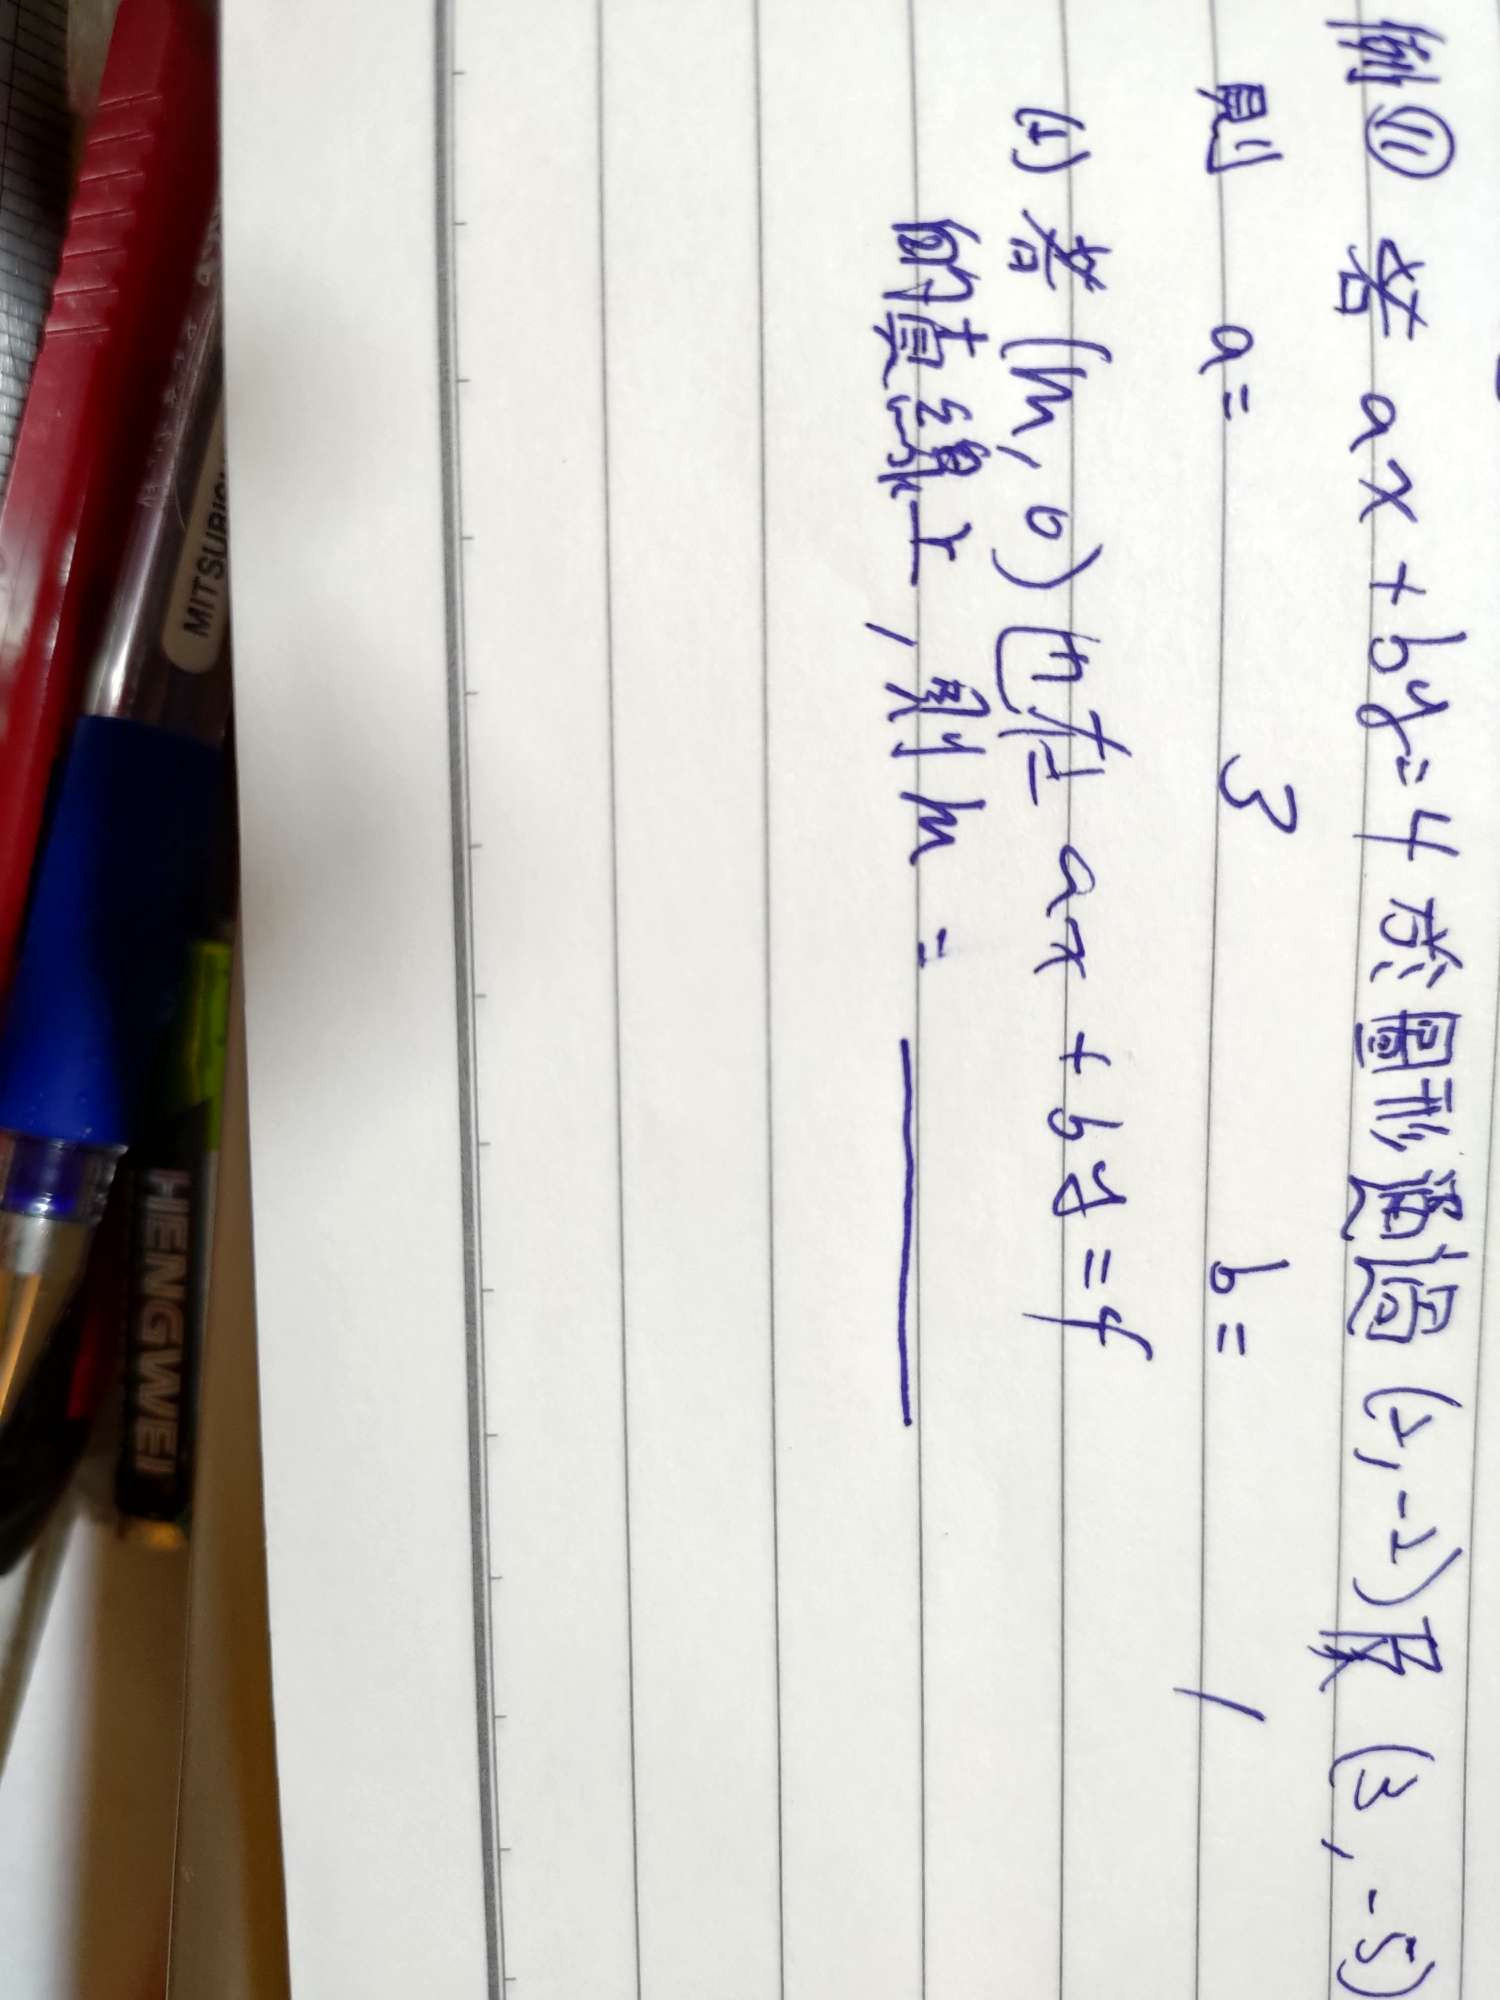 例⑪ 若 ax + by = 4 於圖形通過 (2, -2) 及 (3, -5)
則 a = 3 b = 1
(1) 若 (m, 0) 在 ax + by = 4
的直線上, 則 m =
MITSUBISH
HENGWEI